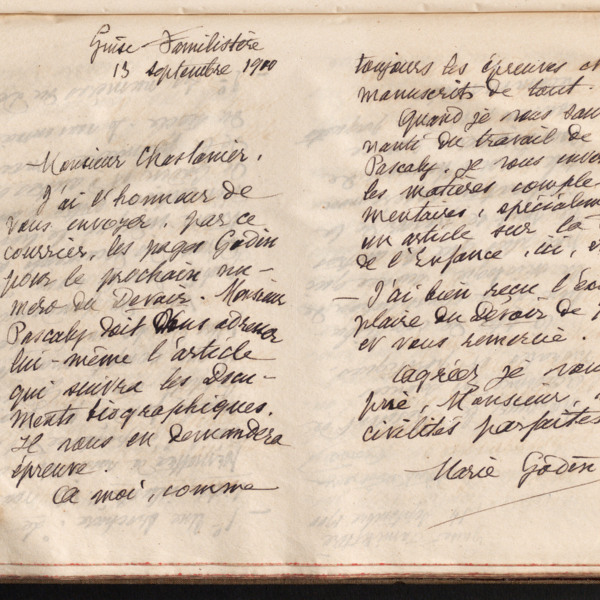 Guise Familistère
13 septembre 1900
Monsieur Chastanier,
J'ai l'honneur de
vous envoyer, par ce
courrier, les pages Godin
pour le prochain nu-
mero du Devoir. Monsieur
Pascaly doit vous adresser
lui-même l'article
qui suivra les Docu-
ments biographiques.
Il vous en demandera
épreuve.
A moi, comme
toujours les épreuves et
manuscrits de tout.
Quand je vous sau
nanti du travail de
Pascaly, je vous
les matières complé-
mentaires, spécialem
un article sur la
de l'Enfance, ici,
— J'ai bien reçu l'
plaire du Devoir de
et vous remercie.
Agréez je vou
prie, Monsieur,
civilités parfaites
Marie Godin